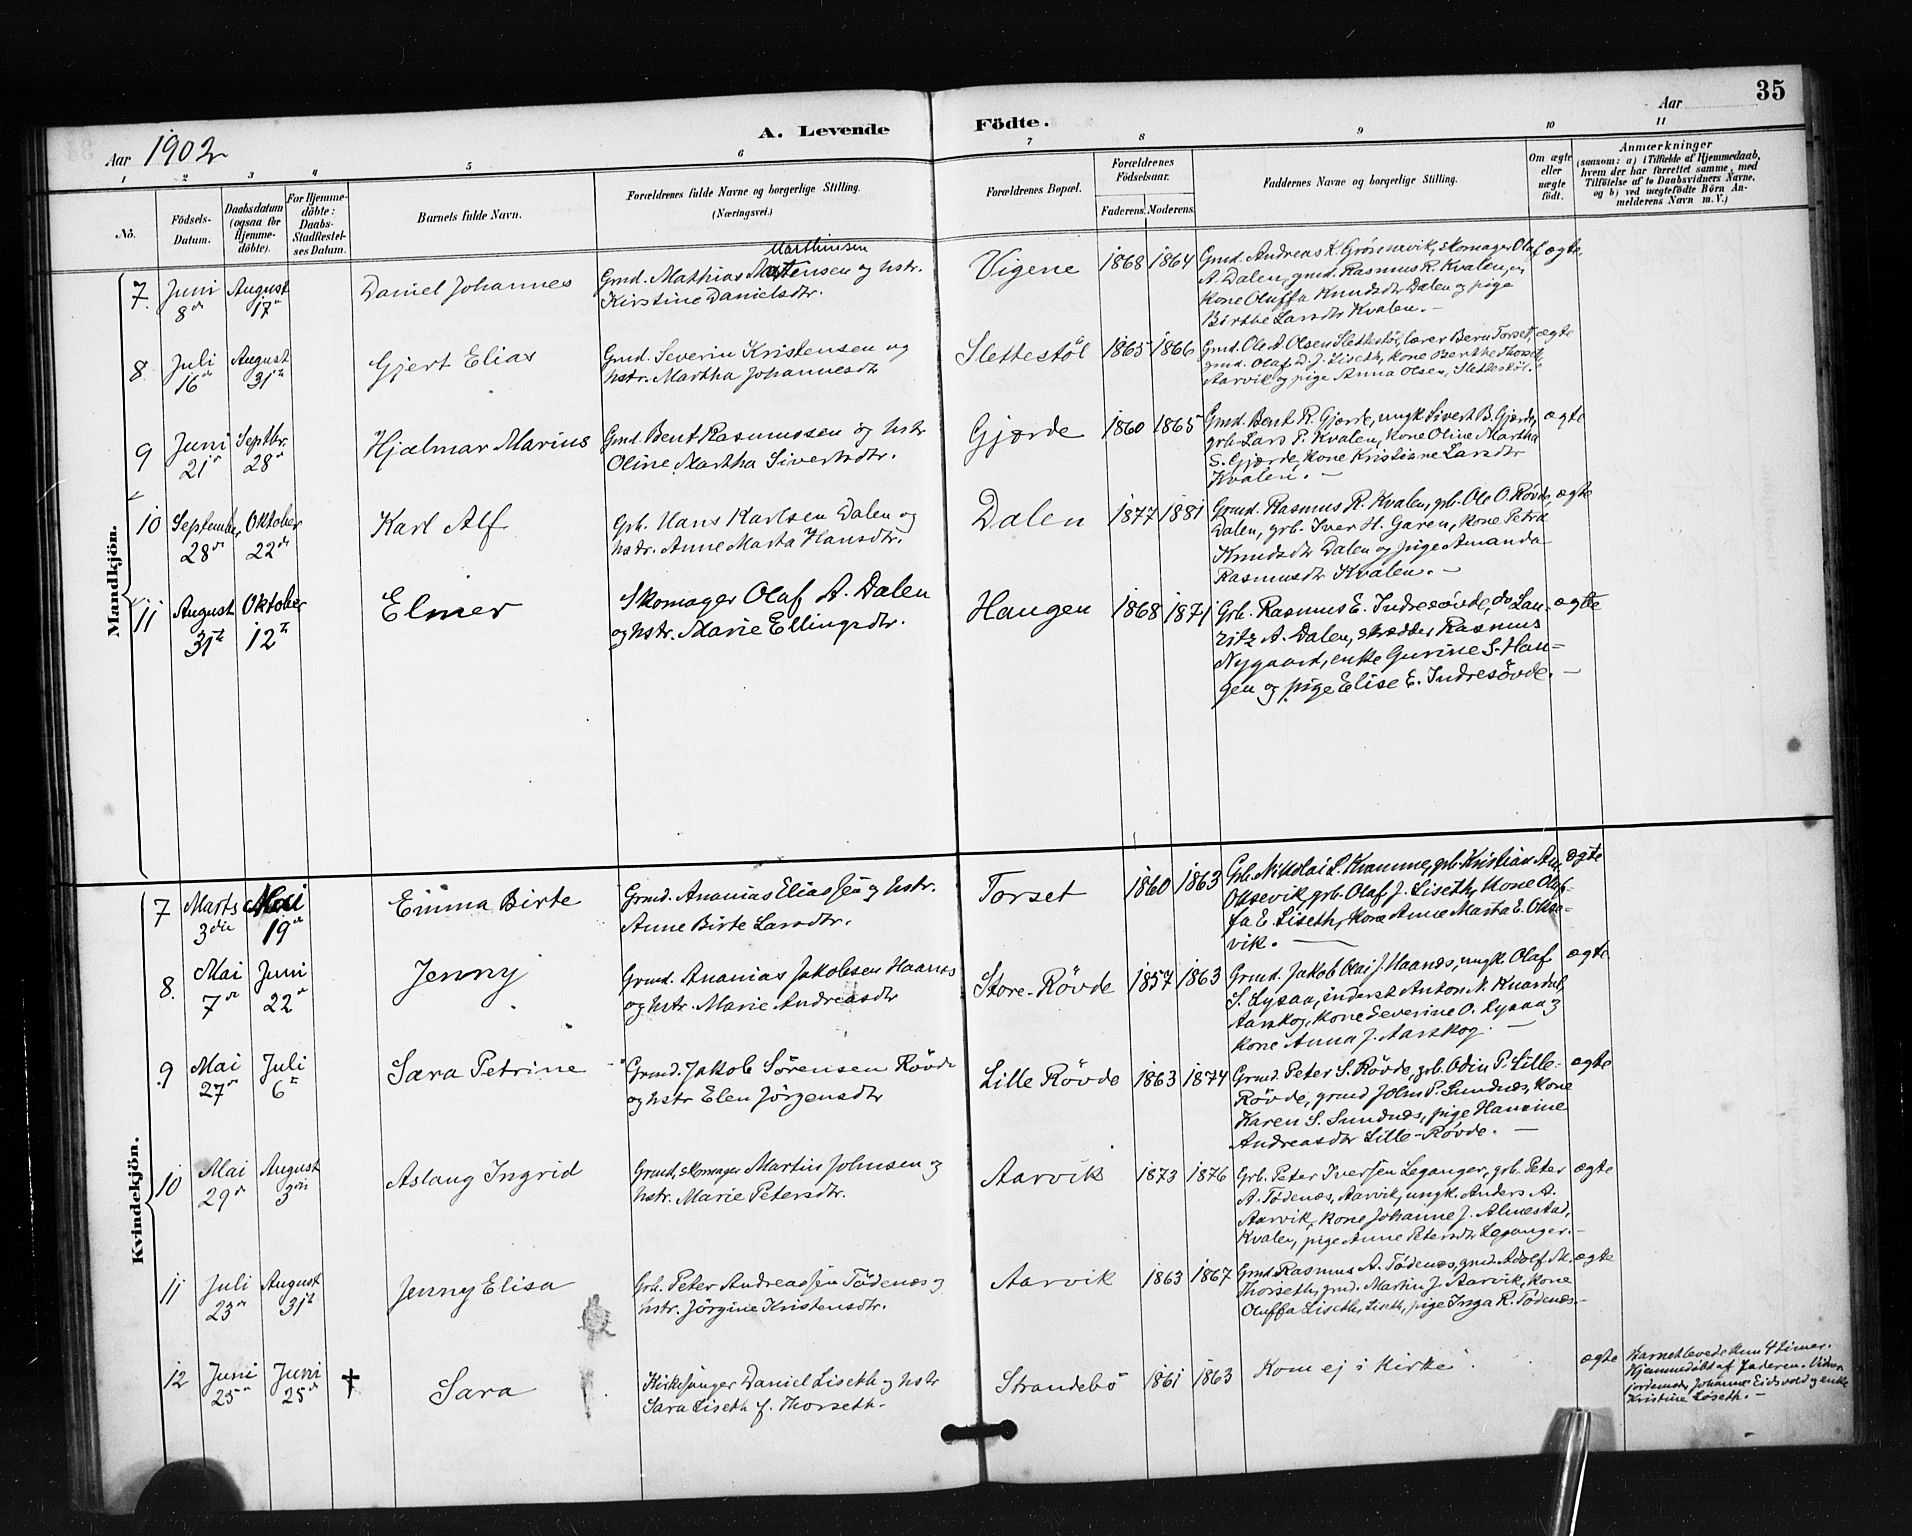 35
Aar 1902
A. Levende Födte.
Aar
1 2 3 4 5 6 7 8 9 10 11
No.
Födsels-Datum.
Daabsdatum (ogsaa for Hjemme-döbte).
For Hjemme-döbte: Daabs-Stadfæstel-ses Datum.
Barnets fulde Navn.
Forældrenes fulde Navne og borgerlige Stilling. (Næringsvei.)
Forældrenes Bopæl.
Forældrenes Födselsaar.
Faderens. Moderens.
Faddernes Navne og borgerlige Stilling.
Om ægte eller uægte födt.
Anmærkninger
(saasom: a) i Tilfælde af Hjemmedaab, hvem der har forrettet samme, med Tilföielse af to Daabsvidners Navne, og b) ved uægtefödte Börn Anmelderens Navn m. V.)
Mandkjön.
7. Juni 8de August 17de Daniel Johannes
Marthinsen
Gmd. Mathias Mortensen og hstr.
Kirstine Danielsdtr.
Vigene 1868 1864
Gmd. Andreas K. Grönnevik, skomager Olaf ægte
A. Dalen, gmd. Rasmus R. Kvalen, og
kone Oluffa Knudsdtr Dalen og pige
Birthe Larsdtr Kvalen. –
8 Juli 16de August 31te Gjert Elias
Gmd. Severin Kristensen og
hstr. Martha Johannesdtr
Slettestöl 1865 1866
Gmd. Ole A. Olsen Slettestöl, lærer Bern Torset, ægte
gmd. Olaf J. Liseth, kone Berthe Thorset,
Aarvik og pige Anna Olsen, Slettestöl.
9 Juni 21de Septbr. 28de Hjalmar Marius
Gmd. Bent Rasmussen og hstr
Oline Martha Sivertsdtr.
Gjærde 1860 1865
Gmd. Bent R. Gjærde, ungk. Sivert B. Gjærde, ægte
grb. Lars P. Kvalen, kone Oline Martha
S. Gjærde, kone Kristiane Larsdtr
Kvalen. –
10 September 28de Oktober 22de Karl Alf
Grb. Hans Karlsen Dalen og
hstr. Anne Marta Hansdtr.
Dalen 1877 1881
Gmd. Rasmus R. Kvalen, grb. Ole O. Rövde, ægte
Dalen, grb. Iver H. Garen, kone Petra
Knudsdtr Dalen og pige Amanda
Rasmusdtr Kvalen. –
11 August 31te Oktober 12te Elmer
Skomager Olaf A. Dalen
og hstr. Marie Ellingsdtr.
Haugen 1868 1871
Grb. Rasmus E. Indresövde, do Lau- ægte
ritz A. Dalen, skrædder Rasmus
Nygaard, enke Gurine S. Hau-
gen og pige Elise E. Indresövde. –
Kvindekjön.
7 Marts 3die Mai 19de Emma Birte
Grmd. Ananias Eliassen og hstr.
Anne Birte Larsdtr.
Torset 1860 1863
Grb. Nikolai L. Kvamme, grb. Kristian An. ægte
Oksevik, grb. Olaf J. Liseth, kone Oluf-
fa E. Liseth, kone Anne Marta E. Okse-
vik. –
8. Mai 7de Juni 22de Jenny
Grmd. Ananias Jakobsen Haanes
og hstr. Marie Andreasdtr
Store-Rövde 1857 1863
Grmd. Jakob Olai J. Haanes, ungk. Olaf ægte
S. Lysaa, inderst Anton N. Knardal,
Aarskog, kone Severine O. Lysaa og
kone Anna J. Aarskog. –
9 Mai 27de Juli 6te Sara Petrine
Grmd. Jakob Sörensen Rövde
og hstr Elen Jörgensdtr
Lille Rövde 1863 1874
Grmd. Peter S. Rövde, grb. Odin P. Lille- ægte
Rövde, grmd John P. Sundnæs, kone
Karen S. Sundnæs, pige Hansine
Andreasdtr Lille-Rövde. –
10 Mai 29de August 3die Aslaug Ingrid
Grmd, skomager Martin Johnsen og
hstr. Marie Petersdtr.
Aarvik 1873 1876
Grb. Peter Iversen Leganger, grb. Peter ægte
A. Tödenæs, Aarvik, ungk. Anders A.
Aarvik, kone Johanne J. Almestad,
Kvalen, pige Anne Petersdtr Leganger. –
11 Juli 23de August 31te Jenny Elisa
Grb. Peter Andreassen Tödenæs og
hstr. Jörgine Kristensdtr.
Aarvik 1863 1867
Grmd. Rasmus A. Tödenæs, gmd. Adolf M. ægte
Thorseth, grmd. Martin J. Aarvik, kone
Oluffa Liseth, Liseth, pige Inga R. Tödenæs. –
12 Juni 25de Juni 25de † Sara
Kirkesanger Daniel Liseth og hstr
Sara Liseth f. Thorseth.
Strandebö 1861 1863
Kom ej i kirke. ægte
Barnet levede kun 4 timer.
Hjemmedöbt af faderen. Vidner
jordemoder Johanne Eidsvold og enke
Kristine Löseth. –